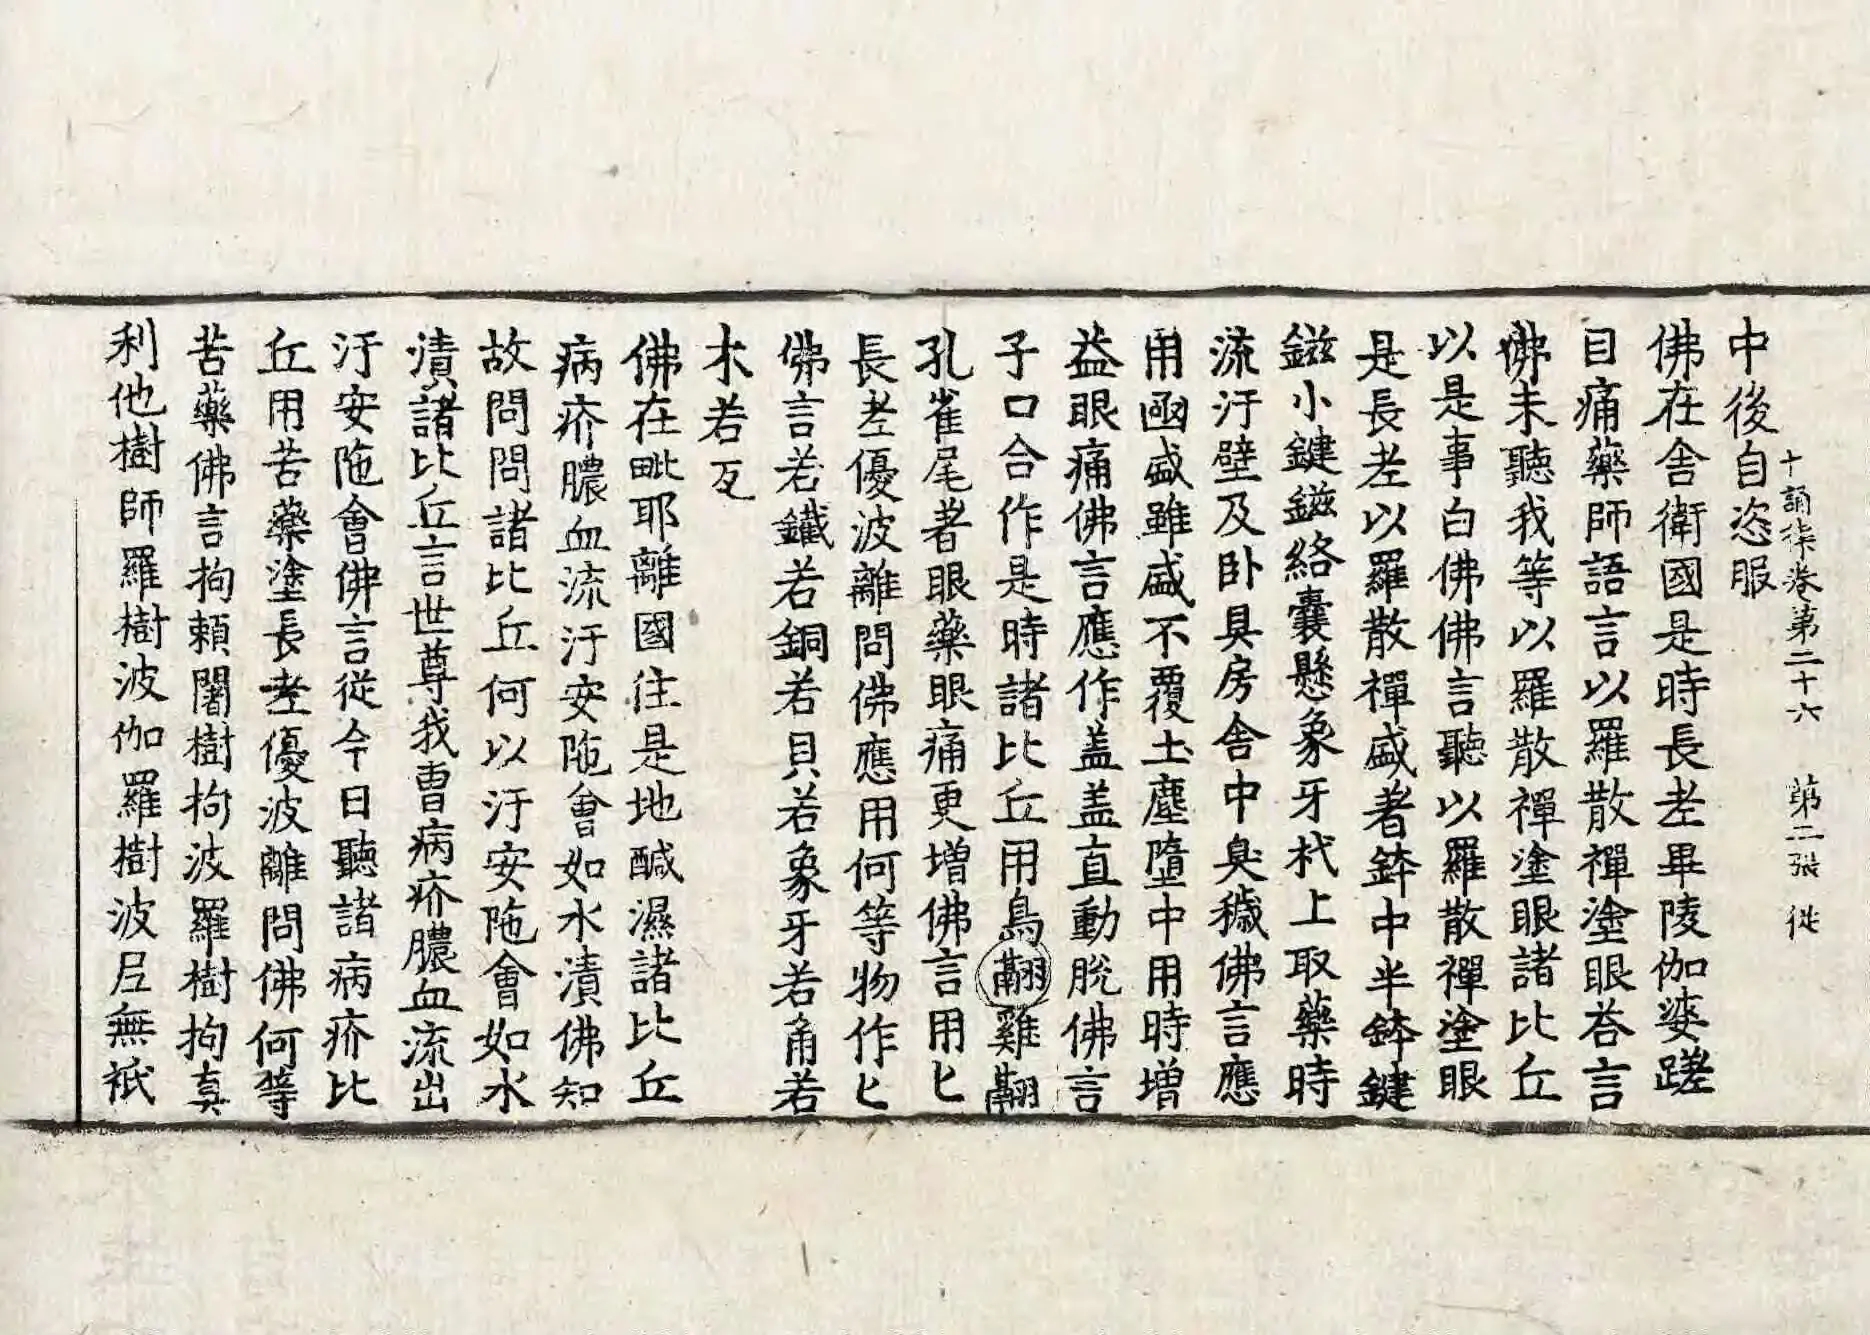 十誦律卷第二十六 第二張 從
中後自恣服
佛在舍衛國是時長老畢陵伽婆蹉
目痛藥師語言以羅散禪塗眼荅言
佛未聽我等以羅散禪塗眼諸比丘
以是事白佛佛言聽以羅散禪塗眼
是長老以羅散禪盛著鉢中半鉢鍵
鎡小鍵鎡絡囊懸象牙杙上取藥時
流汙壁及卧具房舍中臭穢佛言應
用凾盛雖盛不覆土塵墮中用時增
益眼痛佛言應作盖盖直動脫佛言
子口合作是時諸比丘用鳥翮雞翮
孔雀尾著眼藥眼痛更增佛言用匕
長老優波離問佛應用何等物作匕
佛言若鐵若銅若貝若象牙若角若
木若瓦
佛在毗耶離國住是地醎濕諸比丘
病疥膿血流汙安陁會如水漬佛知
故問問諸比丘何以汙安陁會如水
漬諸比丘言世尊我曹病疥膿血流出
汙安陁會佛言從今日聽諸病疥比
丘用苦藥塗長老優波離問佛何等
苦藥佛言拘賴闍樹拘波羅樹拘真
利他樹師羅樹波伽羅樹波尼無祇